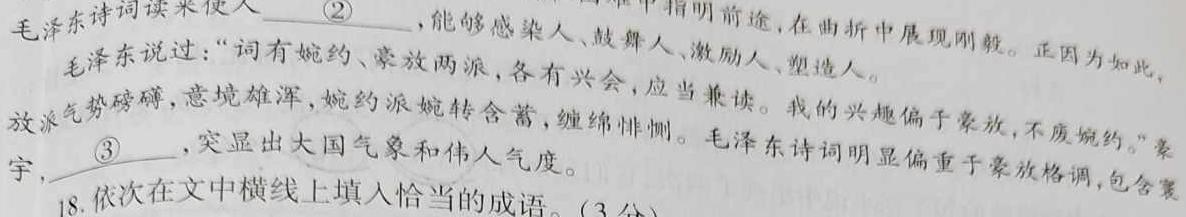 中指明前途，在曲折中展现刚毅。正因为如此，
毛泽东诗词读来使人____②____，能够感染人、鼓舞人、激励人、塑造人。
毛泽东说过：“词有婉约、豪放两派，各有兴会，应当兼读。我的兴趣偏于豪放，不废婉约。”豪
放派气势磅礴，意境雄浑，婉约派婉转含蓄，缠绵悱恻。毛泽东诗词明显偏重于豪放格调，包含寰
宇，____③____，突显出大国气象和伟人气度。
18. 依次在文中横线上填入恰当的成语。（3 分）